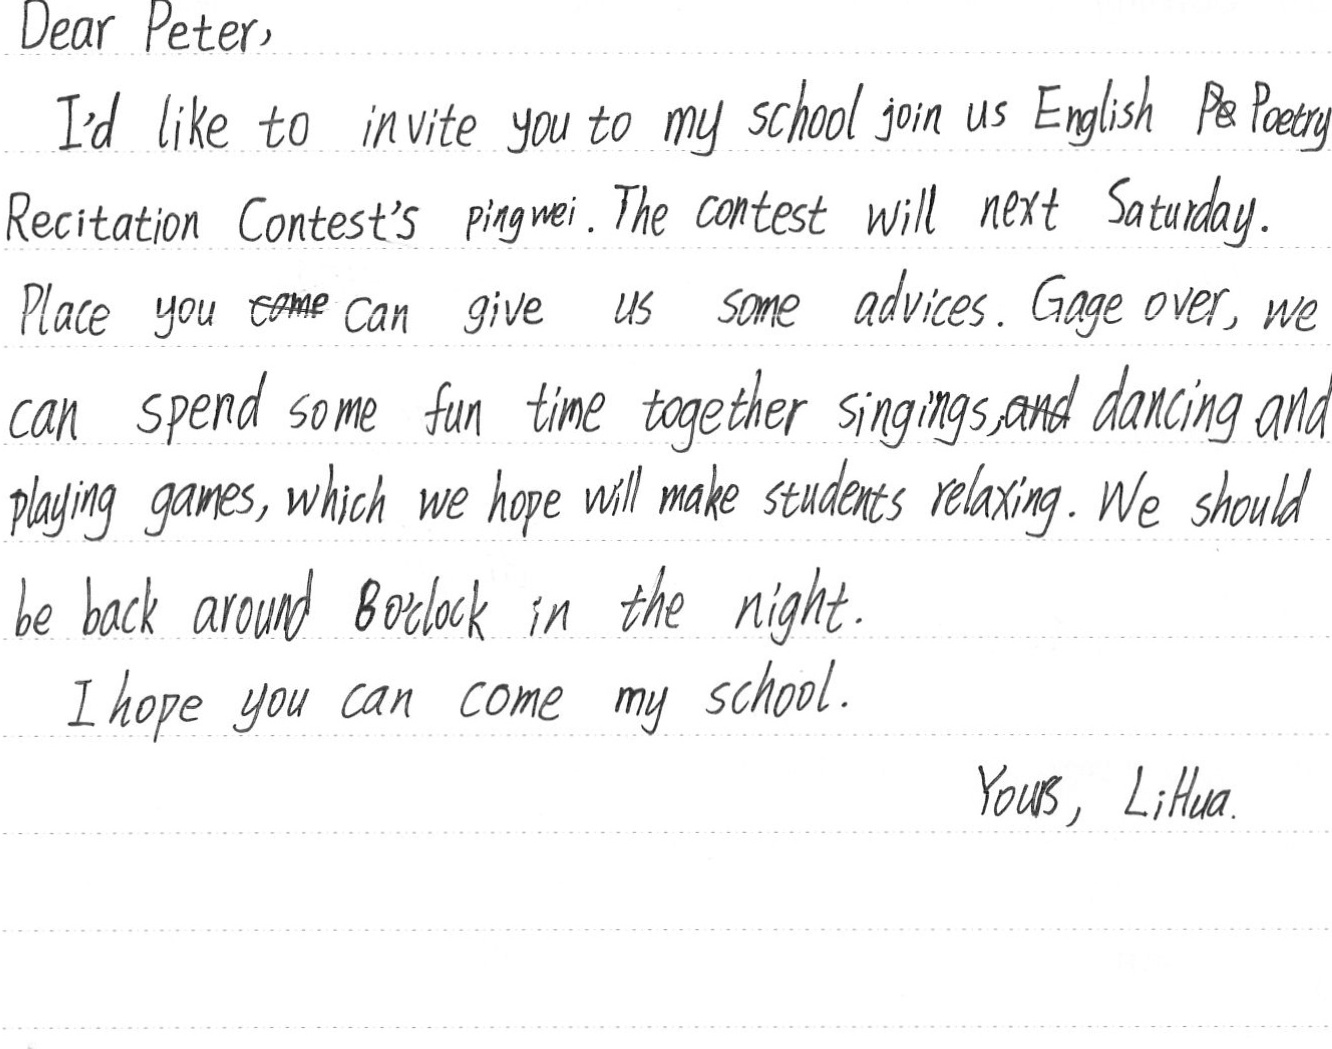 Dear Peter,
I'd like to invite you to my school join us English Poetry
Recitation Contest's pingwei. The contest will next Saturday.
Place you can give us some advices. Gage over, we
can spend some fun time together singings, dancing and
playing games, which we hope will make students relaxing. We should
be back around 8o'clock in the night.
I hope you can come my school.
Yours, LiHua.